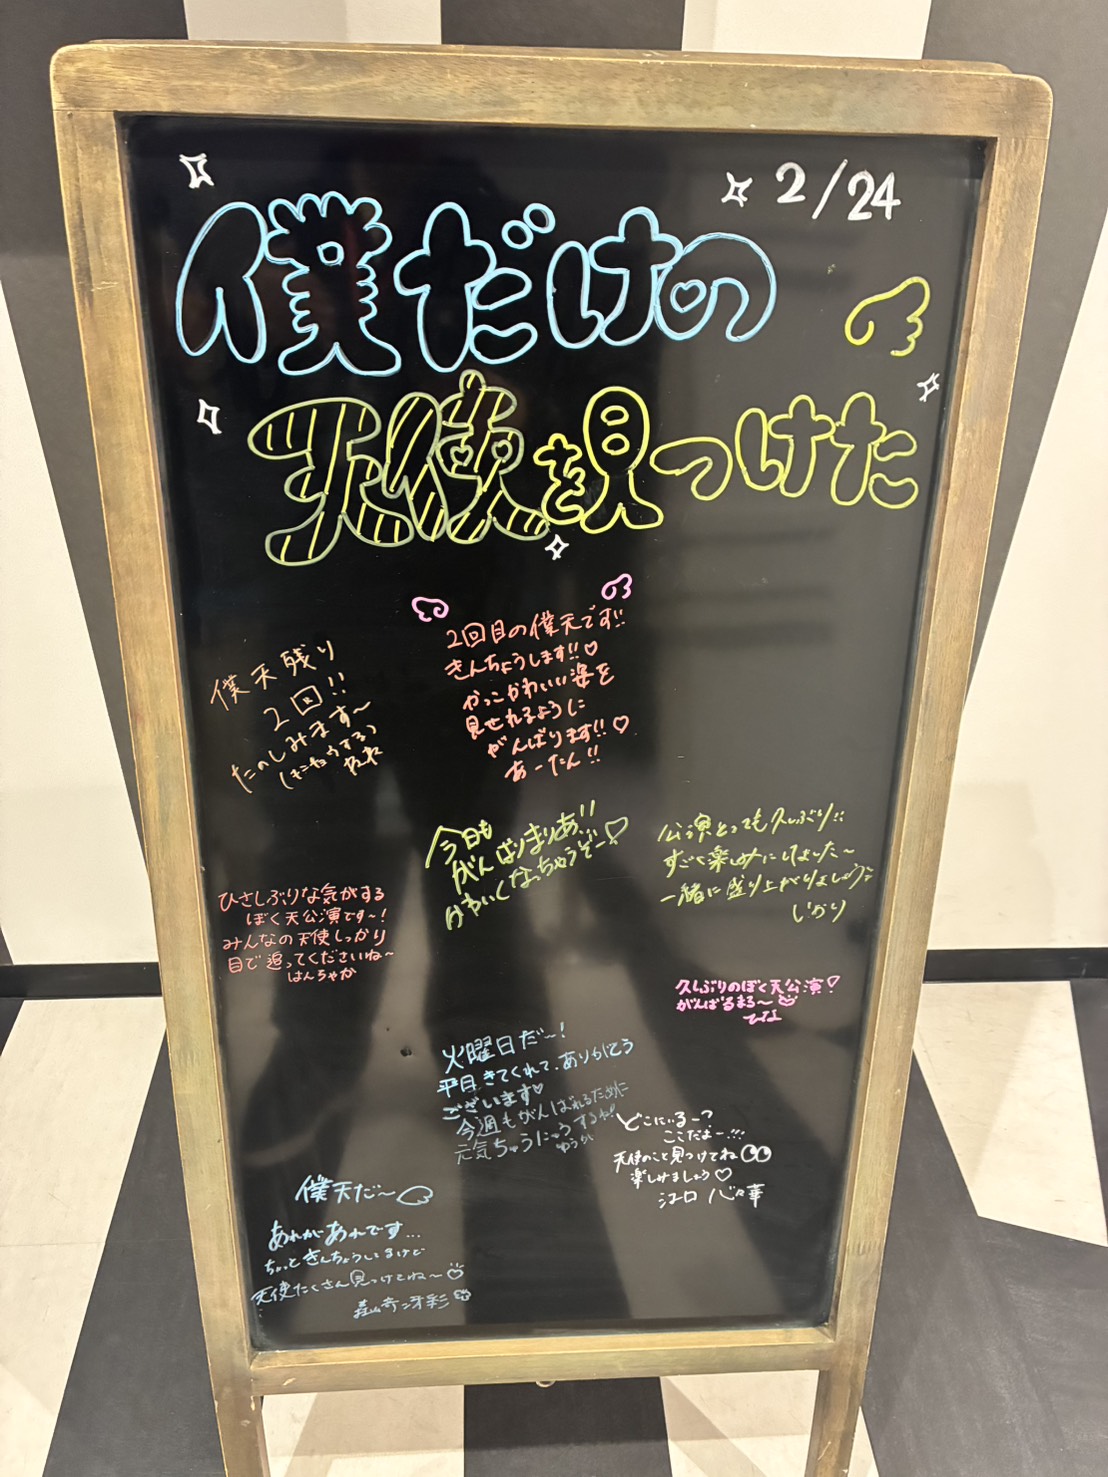 2/24
僕だけの
天使を見つけた
僕天残り
2回!!
たのしみます〜
2回目の僕天です!!
きんちょうします!!♡
かっこかわいい姿を
見せれるように
がんばります!!♡
あーたん!!
今日も
がんばりまりあ!!
けわいくなっちゃうぞー♡
公演とっても久しぶり!!
すごく楽しみにしてました〜
一緒に盛り上がりましょう
しおり
ひさしぶりな気がする
ぼく天公演です〜!
みんなの天使しっかり
目で追ってくださいね〜
はんちゃか
久しぶりのぼく天公演!
がんばるまる〜
ひな
火曜日だ〜!
平日きてくれて、ありがとう
ございます♡
今週もがんばれるために
元気ちゅうにゅうするね!
ゆうか
どこにいるー?
ここだよー!!!
天使のこと見つけてね
楽しみましょう♡
江口 心々華
僕天だ〜
あれがあれです…
ちょっときんちょうしてるけど
天使たくさん見つけてね〜
森山奇 冴彩